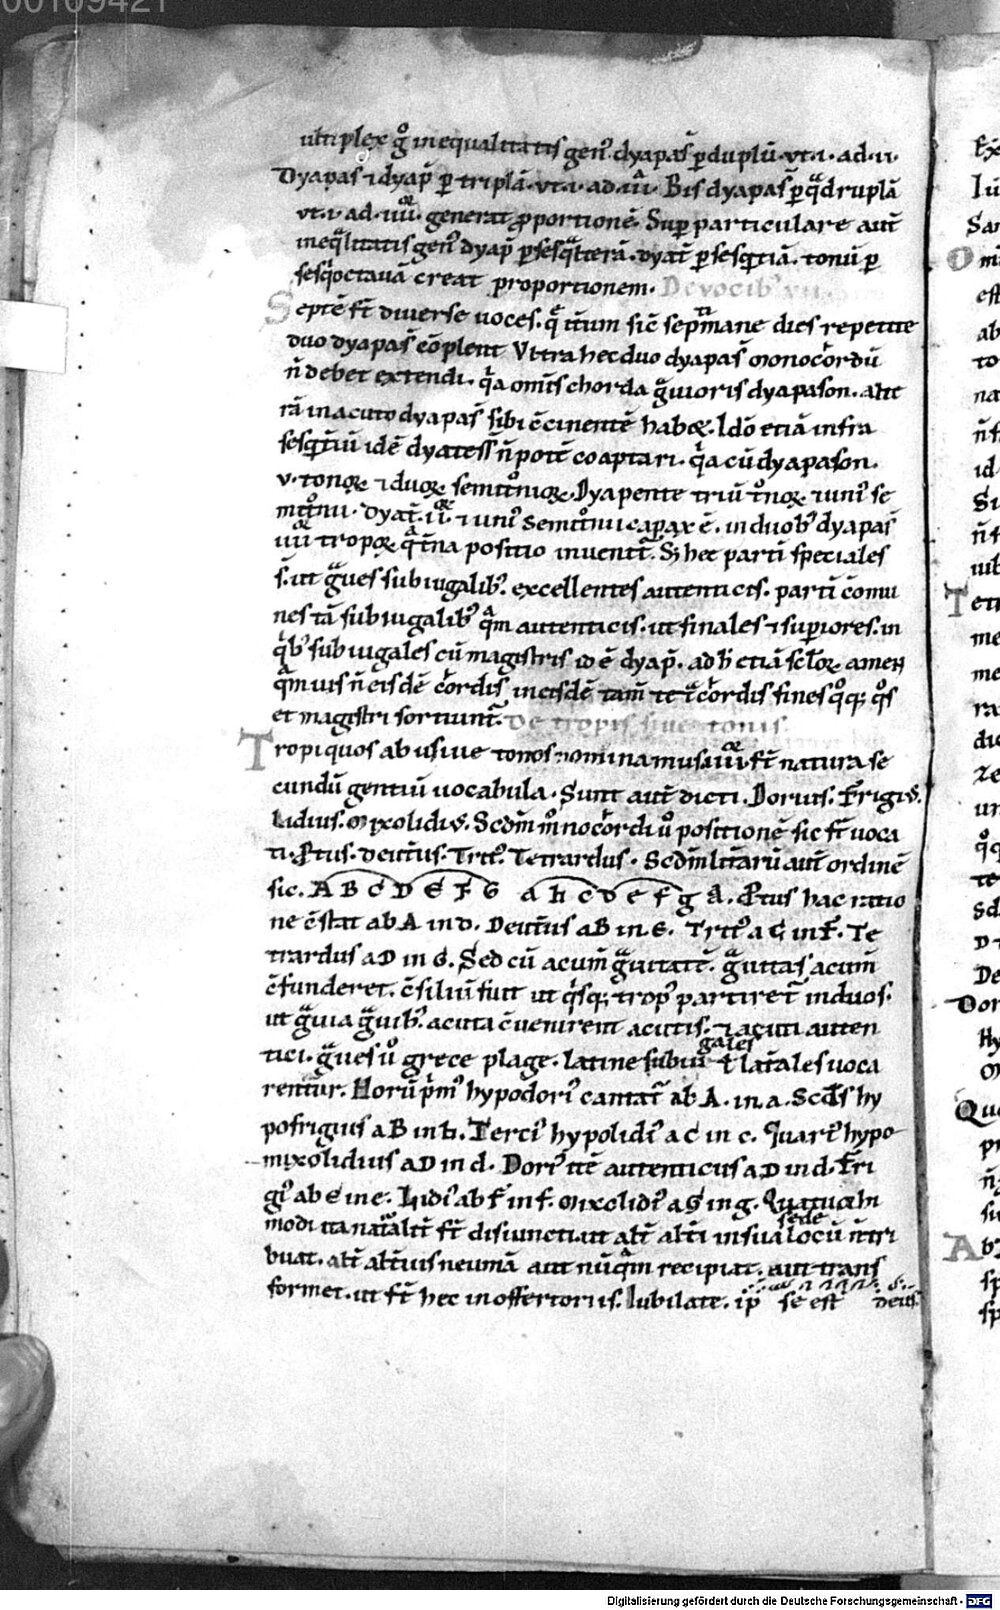 00109421
ultiplex g̊ inequalitatis gen᷒ dyapas̄ ꝑ duplū·vt·i·ad·ii·
Dyapas ⁊ dyap̄ ꝑ triplā·vt·i·ad·iii· Bis dyapas̄ ꝑ qᷓdruplā
vt·i·ad·iiii· generat ꝓportionē. Suꝑ particulare aut̄
ineqᷓlitatis gen᷒ dyap̄ ꝑ sesqᷓlterā. dyat̄ ꝑ sesqͥtiā. tonū ꝑ
sesqͥoctauā creat proportionem. De vocib᷒ vii
Septē st̄ diuerse uoces. qͣ itūm sic̄ septīmane dies repetite
duo dyapas̄ cōplent Vltra hec duo dyapas̄ monocordū
n̄ debet extendi. qͥa omīs chorda gͣuioris dyapason. alte
rā in acuto dyapas̄ sibi c̄cinentē habꝫ. Idō etiā infra
sesqͥtiū idē dyatess̄ n̄ potē coaptari. qͥa cū dyapason.
v. tonoꝝ ⁊ duoꝝ semitonioꝝ. Dyapente triū tonoꝝ ⁊ uni᷒ se
mitonii. dyat̄. iioꝝ. ⁊ uni᷒ semitonii capax ē. in duob᷒ dyapas̄
iiiioꝝ tropoꝝ qͣt̄na positio inuenit̄. Sꝫ hec parti speciales
s. ut gͣues subiugalib᷒. excellentes autenticis. parti cōmu
nes tā subiugalib᷒ qͣm autenticis. ut finales ⁊ suꝑiores. in
qͥb᷒ subiugales cū magistris id ē dyap̄. ad h̄ etiā
qͣmuis n̄ eisdē cordis̄ in eisdē tam̄ cordis fines qͦqꝫ qͦs
et magistri sortiunt̄. De tropis siue tonis.
Tropi quos abusiue tonos nominamus iiiioꝝ st̄ natura se
cundū gentiū uocabula. Sunt aut̄ dicti. Dorius. Frigi᷒.
Lidius. Mixolidi᷒. Scd̄m monocordi u̇ positionē sic st̄ uoca
ti. Ꝓtus. Deut̄us. Trit᷒. Tetrardus. Scd̄m lit̄arū aut̄ ordinē
sic. A B C D E F G a b c d e f g a. Ꝓtus hac ratio
ne c̄stat ab A in d. Deut̄us a B in e. Trit᷒ a C in F. Te
trardus a D in G. Sed cū acum̄ gͣuitatē. gͣuitas acum̄
c̄funderet. c̄siliū fuit ut qͥsqꝫ trop᷒ partiret̄ in duos.
ut gͣuia gͣuib᷒. acuta c̄uenirent acutis. ⁊ acuti auten
tici. gͣues u̇ grece plage. Latine subiu gales ł lat̄ales uoca
rentur. Horū pͥm᷒ hypodori᷒ cantat̄ ab A. in a. Scd̄s hy
pofrigius a B in b. Terci᷒ hypolidi᷒ a C in c. Quart᷒ hypo
mixolidius a D in d. Dori᷒ itē autenticus a D in d. Fri
gi᷒ ab E in e. Lidi᷒ ab F in f. Mixolidi᷒ a G in g. Quatuor h
modi ita nat̄alit̄ st̄ disiuncti. ut alt̄ alt̄i in sua sede locū n̄ tri
buat. alt̄ alt̄ius neumā aut nūqͣm recipiat. aut trans
formet. ut st̄ hec in offertoriis. Iubilate. ip̄ se est deus.
Digitalisierung gefördert durch die Deutsche Forschungsgemeinschaft - DFG